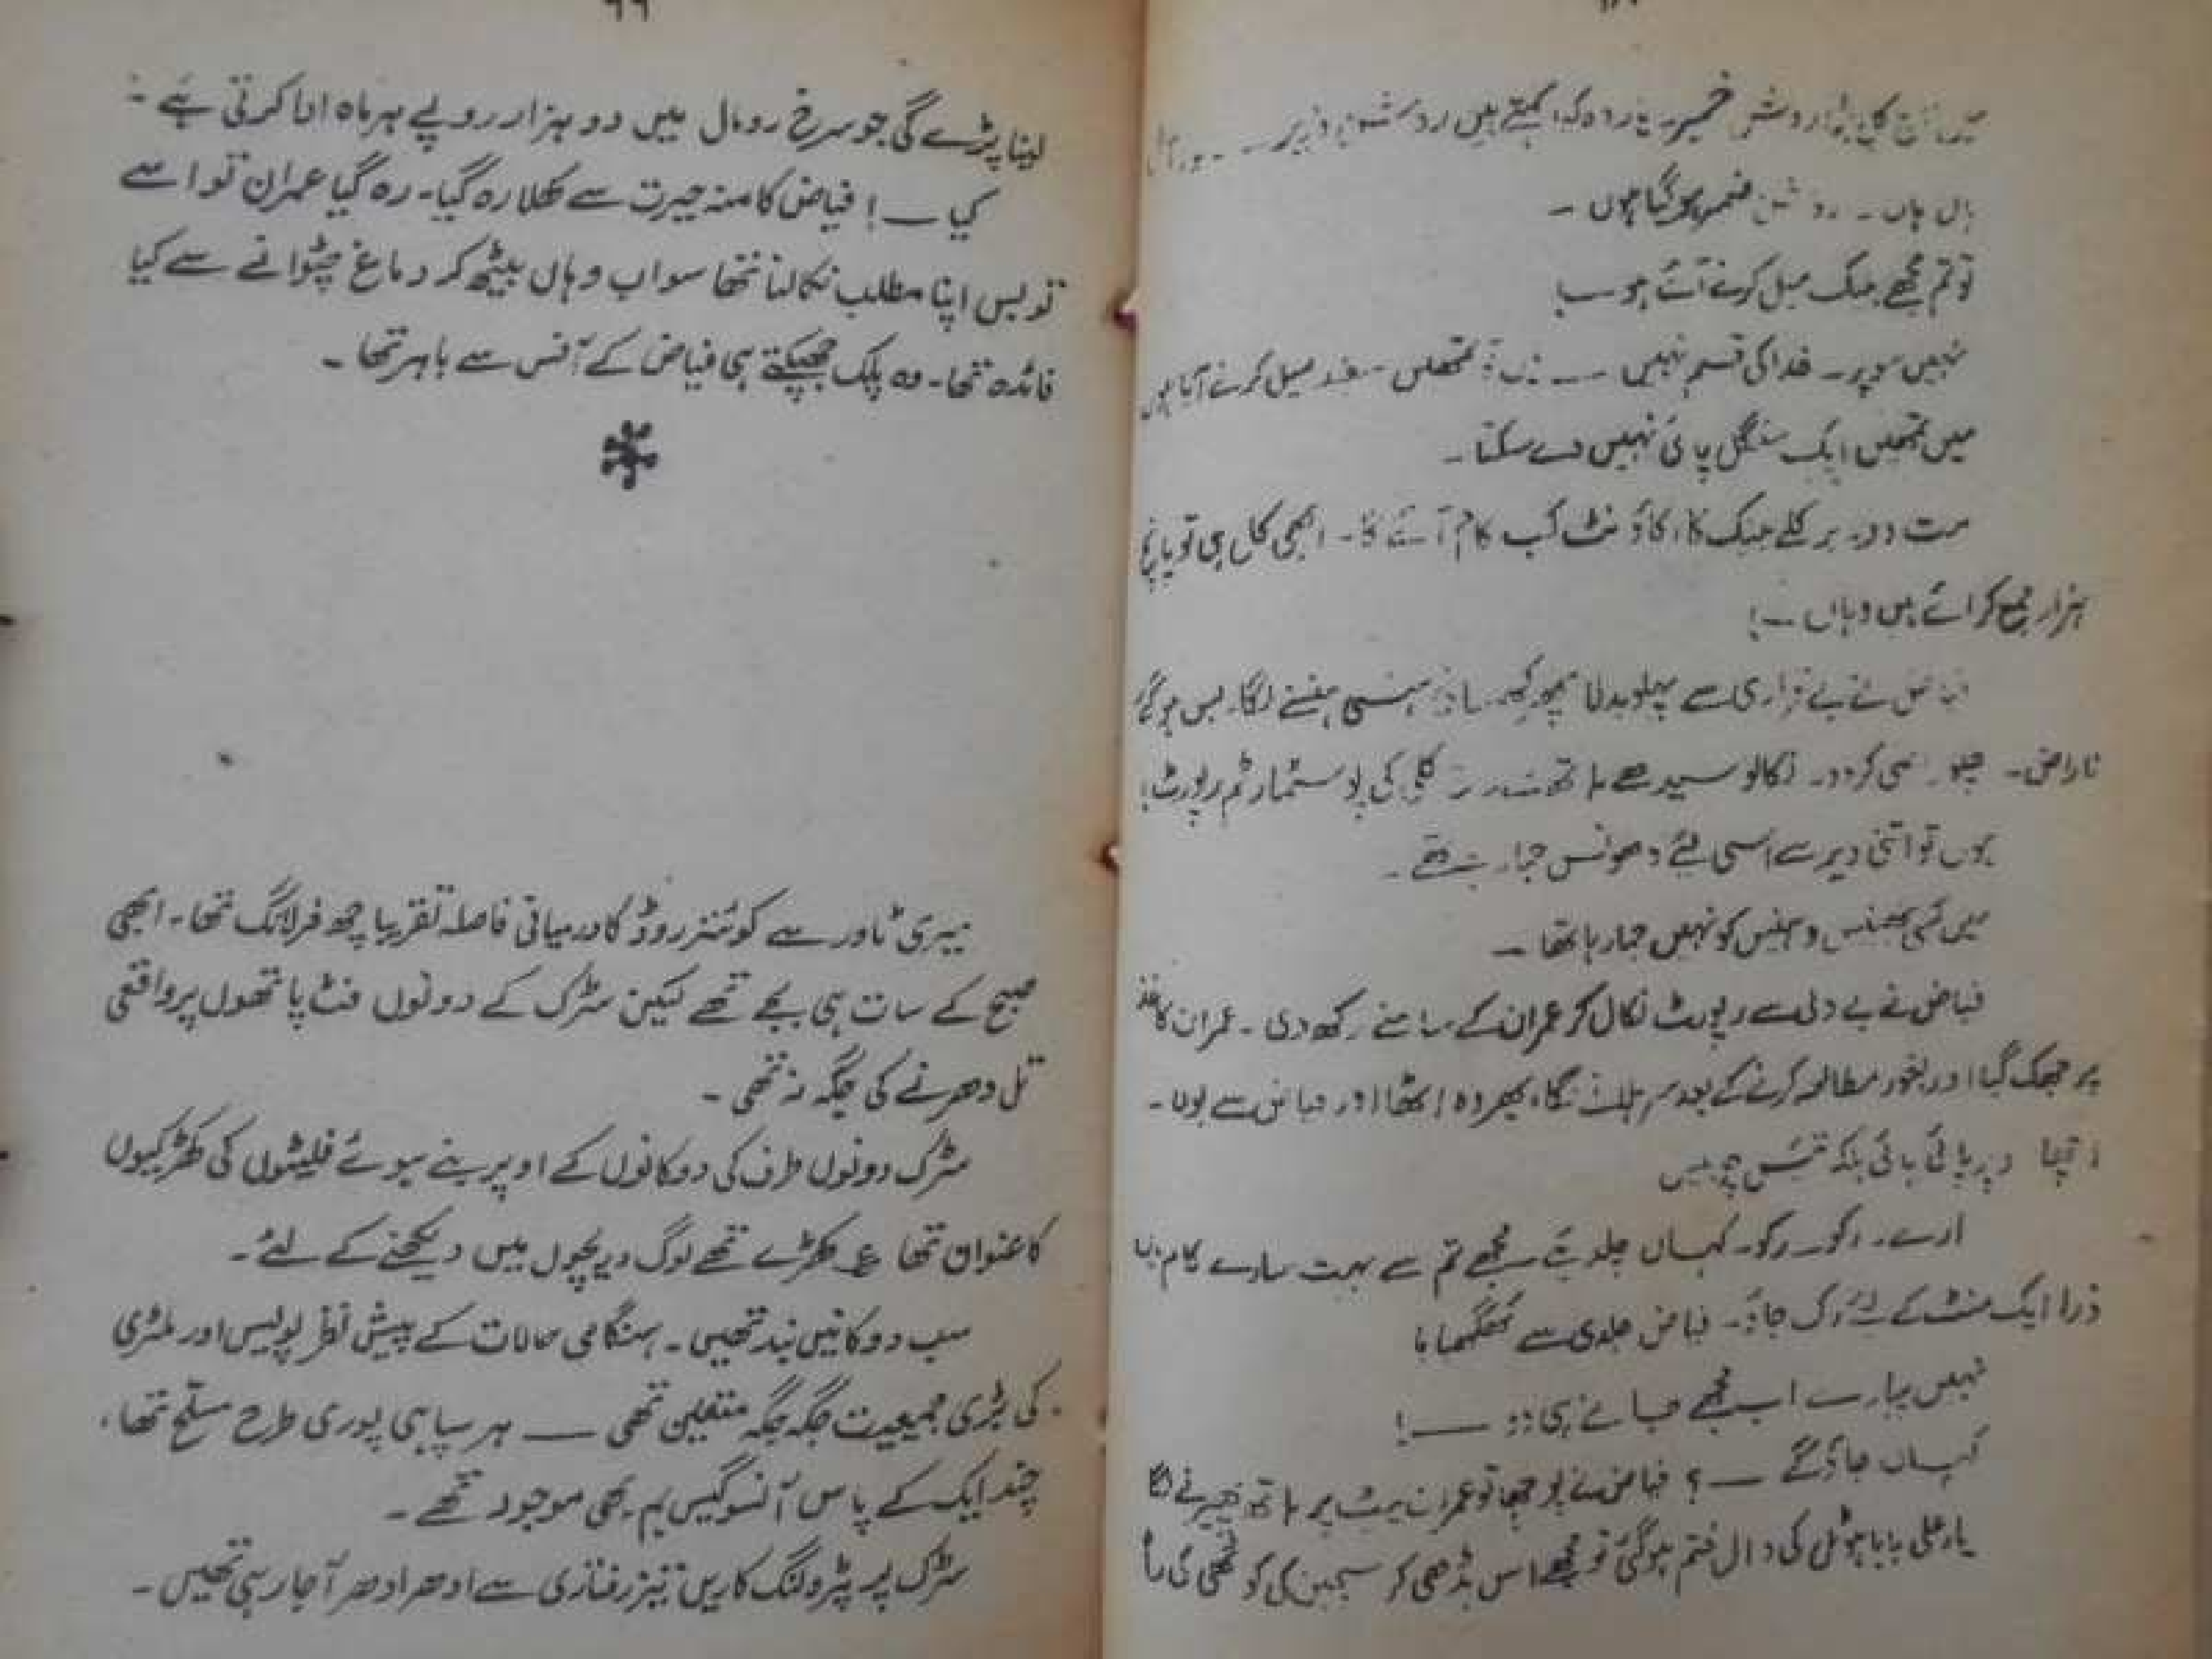 ہاں ہاں۔ روشن ضمیر ہو گیا ہوں ۔
تو تم مجھے بلیک میل کرنے آئے ہو
نہیں سوپر۔ خدا کی قسم نہیں ــــ تمھیں میل کرنے آیا ہوں
میں تمھیں ایک سنگل پائی نہیں دے سکتا۔
مت دو۔ برکلے بینک کا اکاؤنٹ کب کام آئے گا۔ ابھی کل ہی تو پانچ
ہزار جمع کرائے ہیں وہاں ــ!
نے بے قراری سے پہلو بدلا پھر ہنسی ہنسنے لگا۔ بس ہو گئے
ناراض۔ چلو کر دو۔ نکالو سیدھے ہاتھ سے کی پوسٹمارٹم رپورٹ!
یوں تو اتنی دیر سے اسی لئے دھونس جما رہے تھے۔
میں کسی بھینس وہینس کو نہیں جما رہا تھا ــ
فیاض نے بے دلی سے رپورٹ نکال کر عمران کے سامنے رکھ دی۔ عمران کاغذ
پر جھک گیا اور بغور مطالعہ کرنے کے بعد سر ہلانے لگا، پھر وہ اٹھا اور فیاض سے بولا۔
اچھا بائی بائی بلکہ
ارے۔ رکو۔ رکو۔ کہاں چلدیئے مجھے تم سے بہت سارے کام
ذرا ایک منٹ کے لئے رک جاؤ۔ فیاض جلدی سے گھگھیایا
نہیں پیارے اب مجھے جانے ہی دو ــــ!
کہاں جاؤگے ــ؟ فیاض نے پوچھا تو عمران پیٹ پر ہاتھ پھیرنے لگا
یار علی بابا ہوٹل کی دال ختم ہو گئی تو مجھے اس بڈھی کر سچین کی کوٹھی کی راہ
٦٦
لینا پڑے گی جو سرخ رومال میں دو ہزار روپے ہر ماہ ادا کرتی ہے۔
کیا ــ! فیاض کا منہ حیرت سے کھلا رہ گیا۔ رہ گیا عمران تو اسے
تو بس اپنا مطلب نکالنا تھا سو اب وہاں بیٹھ کر دماغ چٹوانے سے کیا
فائدہ تھا۔ وہ پلک جھپکتے ہی فیاض کے آفس سے باہر تھا۔
ٹاور سے کوئنز روڈ کا درمیانی فاصلہ تقریبا چھ فرلانگ تھا۔ ابھی
صبح کے سات ہی بجے تھے لیکن سڑک کے دونوں فٹ پاتھوں پر واقعی
تل دھرنے کی جگہ نہ تھی ۔
سڑک دونوں طرف کی دوکانوں کے اوپر بنے ہوئے فلیٹوں کی کھڑکیوں
کا عنوان تھا ؏ کھڑے تھے لوگ دریچوں میں دیکھنے کے لئے۔
سب دوکانیں بند تھیں۔ ہنگامی حالات کے پیش نظر پولیس اور ملٹری
کی بڑی جمیعت جگہ جگہ متعین تھی ــــ ہر سپاہی پوری طرح مسلح تھا،
چند ایک کے پاس آنسو گیس بم بھی موجود تھے۔
سڑک پر پٹرولنگ کاریں تیز رفتاری سے ادھر ادھر آ جا رہی تھیں۔